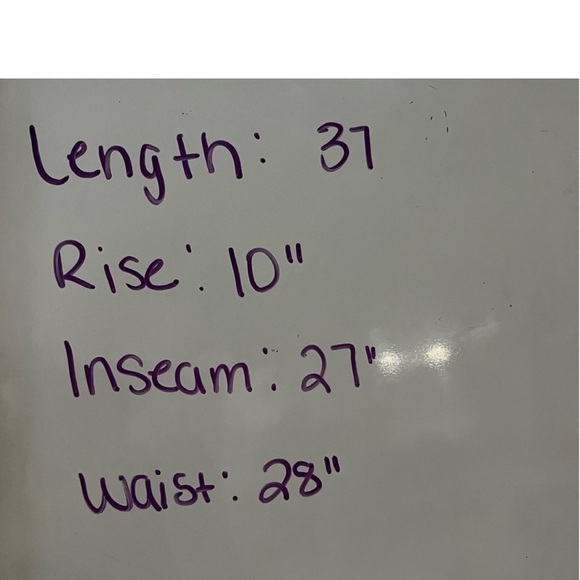 Length: 37
Rise: 10"
Inseam: 27"
Waist: 28"